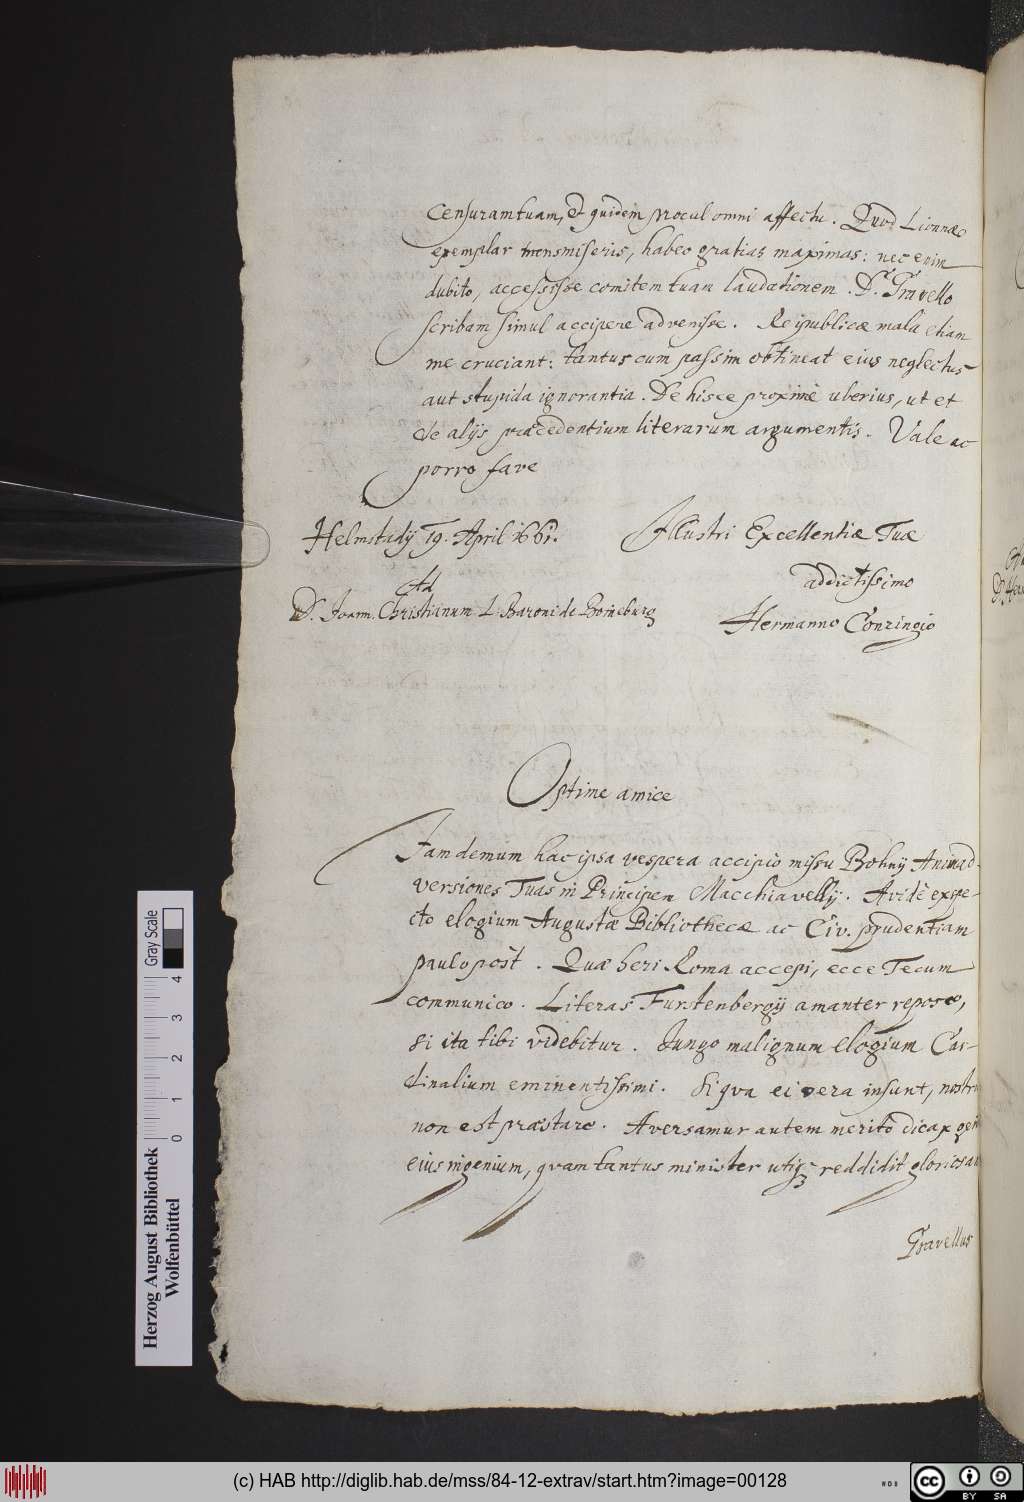 censuram tuam, et quidem procul omni affectu. Quod Lionnæo
exemplar transmiseris, habeo gratias maximas: nec enim
dubito, accessisse comitem tuam laudationem. Dn. Gravello
scribam simul accipere advenisse. Reipublicæ mala etiam
me cruciant: tantus cum passim obtineat eius neglectus
aut stupida ignorantia. De hisce proximè uberius, ut et
de alijs præcedentium literarum argumentis. Vale ac
porro fave
Helmstadij 19. April 1661.
Illustri Excellentiæ Tuæ
addictissimo
Hermanno Conringio
Ad
D. Joann. Christianum L. Baroni de Boineburg
Optime amice
Jam demum hac ipsa vespera accipio missu Bohnij Animad-
versiones Tuas in Principem Macchiavellij. Avidè expe-
cto elogium Augustæ Bibliothecæ ac Civ. prudentiam
paulo pòst. Quæ heri Roma accepi, ecce Tecum
communico. Literas Furstenbergij amanter reposco,
si ita tibi videbitur. Jungo malignum elogium Car-
dinalium eminentissimi. Si qva ei vera insunt, nostru
non est præstare. Aversamur autem meritò dicax
eius ingenium, qvam tantus minister utiq3 reddidit
Gravellus
Herzog August Bibliothek
Wolfenbüttel
Gray Scale
0 1 2 3 4
(c) HAB http://diglib.hab.de/mss/84-12-extrav/start.htm?image=00128
cc BY SA